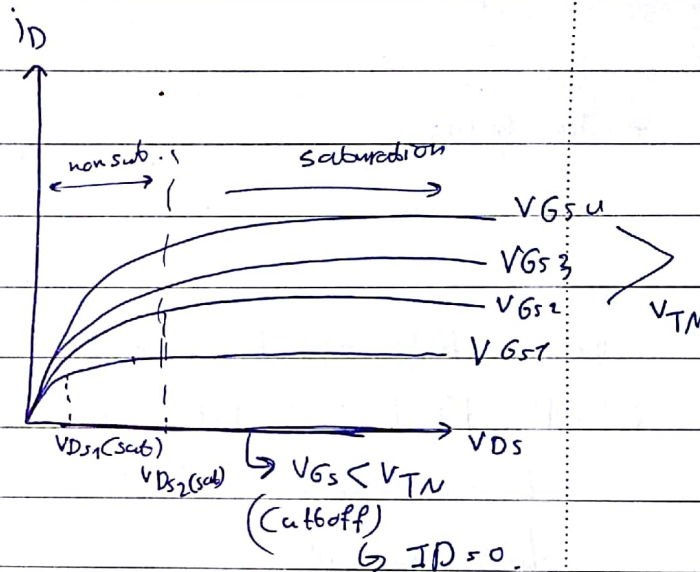 iD
nonsat.
saturation
VGS4
VGS3
VGS2
> VTN
VGS1
VDS1(sat)
VDS2(sat)
VDS
↳ VGS < VTN
(Cutoff)
↳ ID = 0.